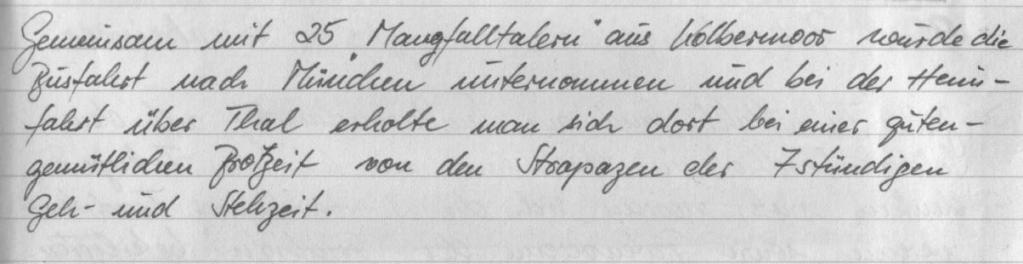 Gemeinsam mit 25 "Mangfalltalern" aus Kolbermoor wurde die
Busfahrt nach München unternommen und bei der Heim-
fahrt über Thal erholte man sich dort bei einer guten-
gemütlichen Brotzeit von den Strapazen der 7stündigen
Geh- und Stehzeit.